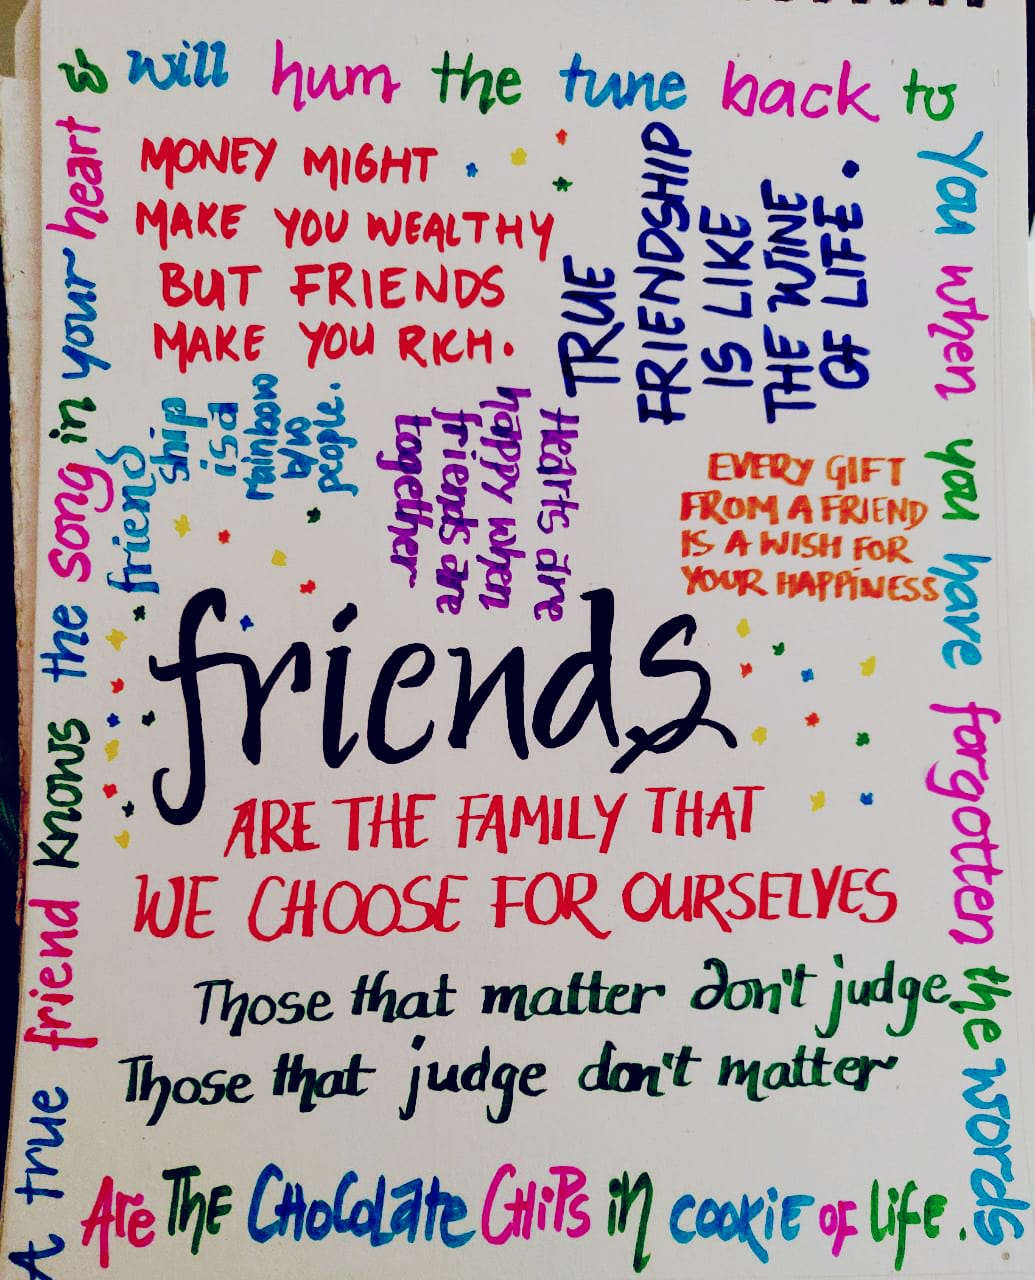 A true friend knows the song in your heart &
will hum the tune back to
you when you have forgotten the words
MONEY MIGHT
MAKE YOU WEALTHY
BUT FRIENDS
MAKE YOU RICH.
TRUE
FRIENDSHIP
IS LIKE
THE WINE
OF LIFE.
friend
ship
is a
rainbow
b/w
people.
Hearts are
happy when
friends are
together
EVERY GIFT
FROM A FRIEND
IS A WISH FOR
YOUR HAPPINESS
friends
ARE THE FAMILY THAT
WE CHOOSE FOR OURSELVES
Those that matter don't judge
Those that judge don't matter
Are The Chocolate Chips in cookie of life.